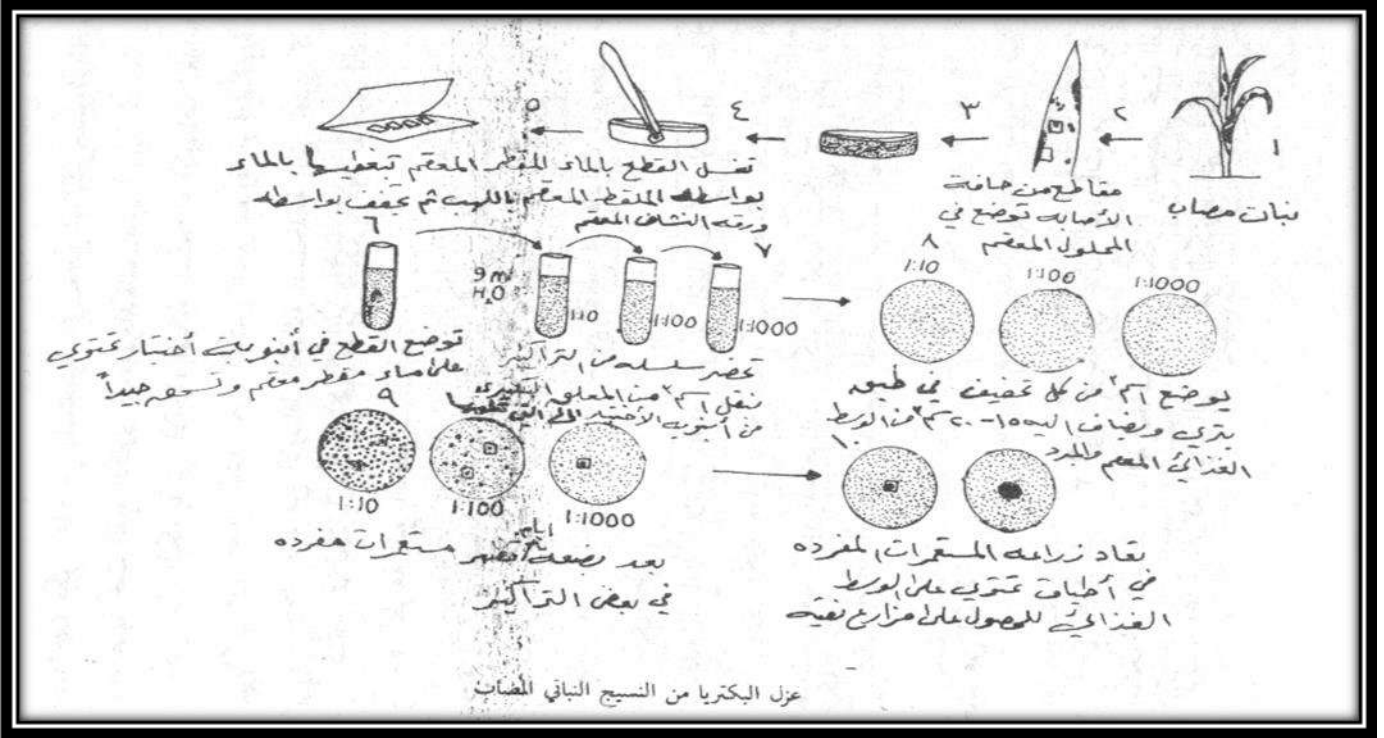 ١
٢
٣
٤
٥
نبات مصاب
مقاطع من حافة
الأصابه توضع في
المحلول المعقم
تغسل القطع بالماء المقطر المعقم بتغطيسها بالماء
بواسطه الملقط المعقم باللهب ثم تجفف بواسطه
ورقه النشاف المعقم
٦
٧
٨
9 m
H₂O
1:10
1:100
1:1000
1:10
1:100
1:1000
توضع القطع في أنبوبة أختبار تحتوي
على ماء مقطر معقم وتسحق جيداً
تحضر سلسله من التراكيز
بنقل ١سم٣ من المعلق البكتيري
من أنبوبه الأختبار الى التي تليها
يوضع ١سم٣ من كل تخفيف في طبق
بتري ويضاف اليه ١٥-٢٠سم٣ من الوسط
الغذائي المعقم والمبرد
٩
١٠
1:10
1:100
1:1000
بعد بضعة أيام تظهر مستعمرات مفرده
في بعض التراكيز
تعاد زراعه المستعمرات المفرده
في أطباق تحتوي على الوسط
الغذائي للحصول على مزارع نقيه
عزل البكتريا من النسيج النباتي المصاب